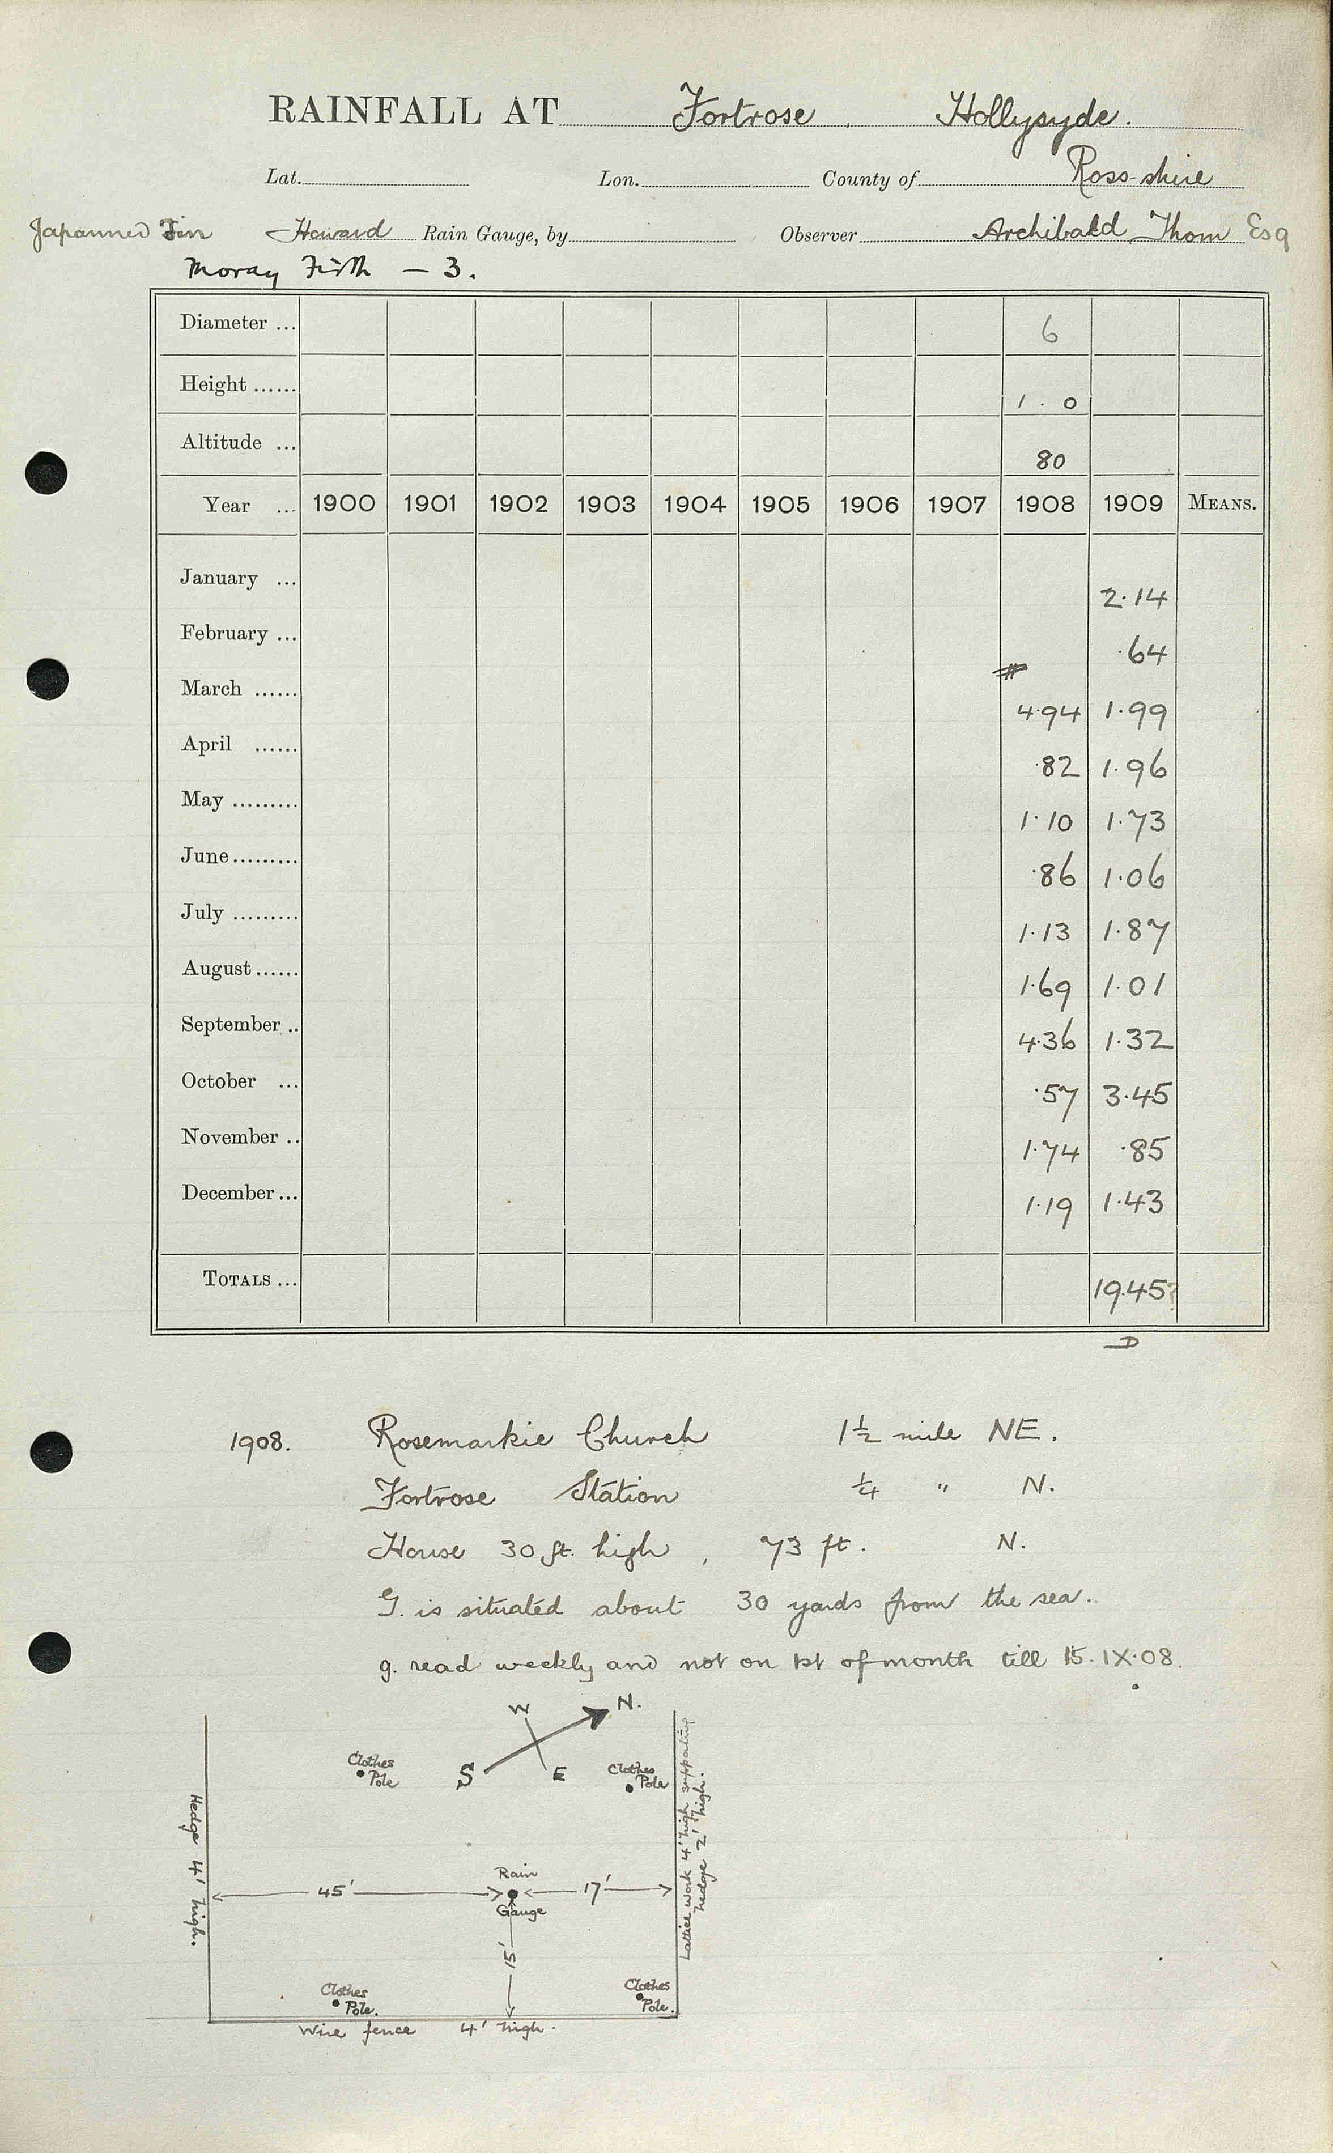 RAINFALL AT Fortrose Hollysyde.
Lat. Lon. County of Ross-shire
Japanned Tin Howard Rain Gauge, by Observer Archibald Thom Esq
Moray Firth – 3.
Diameter ... 6
Height ...... 1 . 0
Altitude ... 80
Year ... 1900 1901 1902 1903 1904 1905 1906 1907 1908 1909 MEANS.
January ... 2.14
February ... .64
#
March ...... 4.94 1.99
April ...... .82 1.96
May ......... 1.10 1.73
June ......... .86 1.06
July ......... 1.13 1.87
August ...... 1.69 1.01
September .. 4.36 1.32
October ... .57 3.45
November .. 1.74 .85
December ... 1.19 1.43
TOTALS ... 19.45?
D
1908. Rosemarkie Church 1½ mile NE.
Fortrose Station ¼ " N.
House 30 ft. high, 73 ft. N.
G. is situated about 30 yards from the sea.
g. read weekly and not on 1st of month till 15.IX.08.
W N.
S E
Clothes Pole
Clothes Pole
Hedge 4' high.
Lattice work 4' high supporting hedge 2' high.
45' Rain Gauge 17'
15'
Clothes Pole.
Clothes Pole.
Wire fence 4' high.